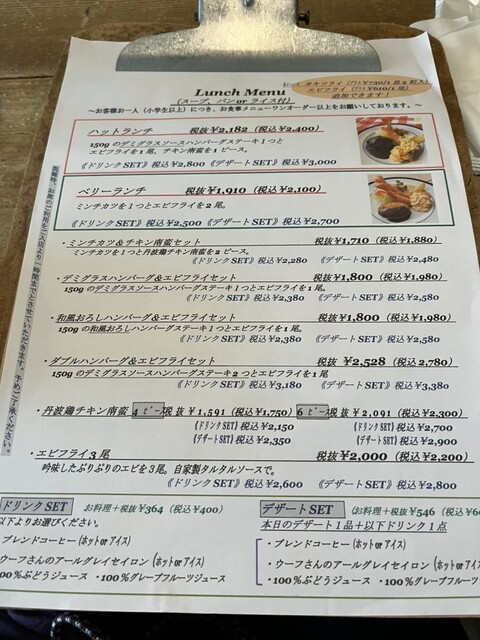 Lunch Menu
(スープ、パン or ライス付)
カキフライ(プラス¥730/1皿2粒入)
エビフライ(プラス¥610/1尾)
追加できます！
～お客様お一人（小学生以上）につき、お食事メニューワンオーダー以上をお願いしております。～
ハットランチ 税抜¥2,182 (税込¥2,400)
150gのデミグラスソースハンバーグステーキ1つと
エビフライを1尾、チキン南蛮を1ピース。
《ドリンクSET》税込¥2,800 《デザートSET》税込¥3,000
ベリーランチ 税抜¥1,910 (税込¥2,100)
ミンチカツを1つとエビフライを2尾。
《ドリンクSET》税込¥2,500 《デザートSET》税込¥2,700
・ミンチカツ&チキン南蛮セット 税抜¥1,710 (税込¥1,880)
ミンチカツを1つと丹波鶏チキン南蛮を2ピース。
《ドリンクSET》税込¥2,280 《デザートSET》税込¥2,480
・デミグラスハンバーグ&エビフライセット 税抜¥1,800 (税込¥1,980)
150gのデミグラスソースハンバーグステーキ1つとエビフライを1尾。
《ドリンクSET》税込¥2,380 《デザートSET》税込¥2,580
・和風おろしハンバーグ&エビフライセット 税抜¥1,800 (税込¥1,980)
150gの和風おろしハンバーグステーキ1つとエビフライを1尾。
《ドリンクSET》税込¥2,380 《デザートSET》税込¥2,580
・ダブルハンバーグ&エビフライセット 税抜¥2,528 (税込2,780)
150gのデミグラスソースハンバーグステーキ2つとエビフライを1尾。
《ドリンクSET》税込¥3,180 《デザートSET》税込¥3,380
・丹波鶏チキン南蛮 4ピース 税抜¥1,591 (税込¥1,750) 6ピース 税抜¥2,091 (税込¥2,300)
《ドリンクSET》税込¥2,150 《ドリンクSET》税込¥2,700
《デザートSET》税込¥2,350 《デザートSET》税込¥2,900
・エビフライ3尾 税抜¥2,000 (税込¥2,200)
吟味したぷりぷりのエビを3尾。自家製タルタルソースで。
《ドリンクSET》税込¥2,600 《デザートSET》税込¥2,800
混雑時、お席のご利用をご入店より一時間までとさせていただきます。予めご了承ください。
ドリンクSET お料理+税抜¥364 (税込¥400)
以下よりお選びください。
・ブレンドコーヒー(ホットorアイス)
・ウーフさんのアールグレイセイロン(ホットorアイス)
100%ぶどうジュース ・100%グレープフルーツジュース
デザートSET お料理+税抜¥546 (税込¥6
本日のデザート1品+以下ドリンク1点
・ブレンドコーヒー(ホットorアイス)
・ウーフさんのアールグレイセイロン(ホットorアイス)
・100%ぶどうジュース ・100%グレープフルーツ